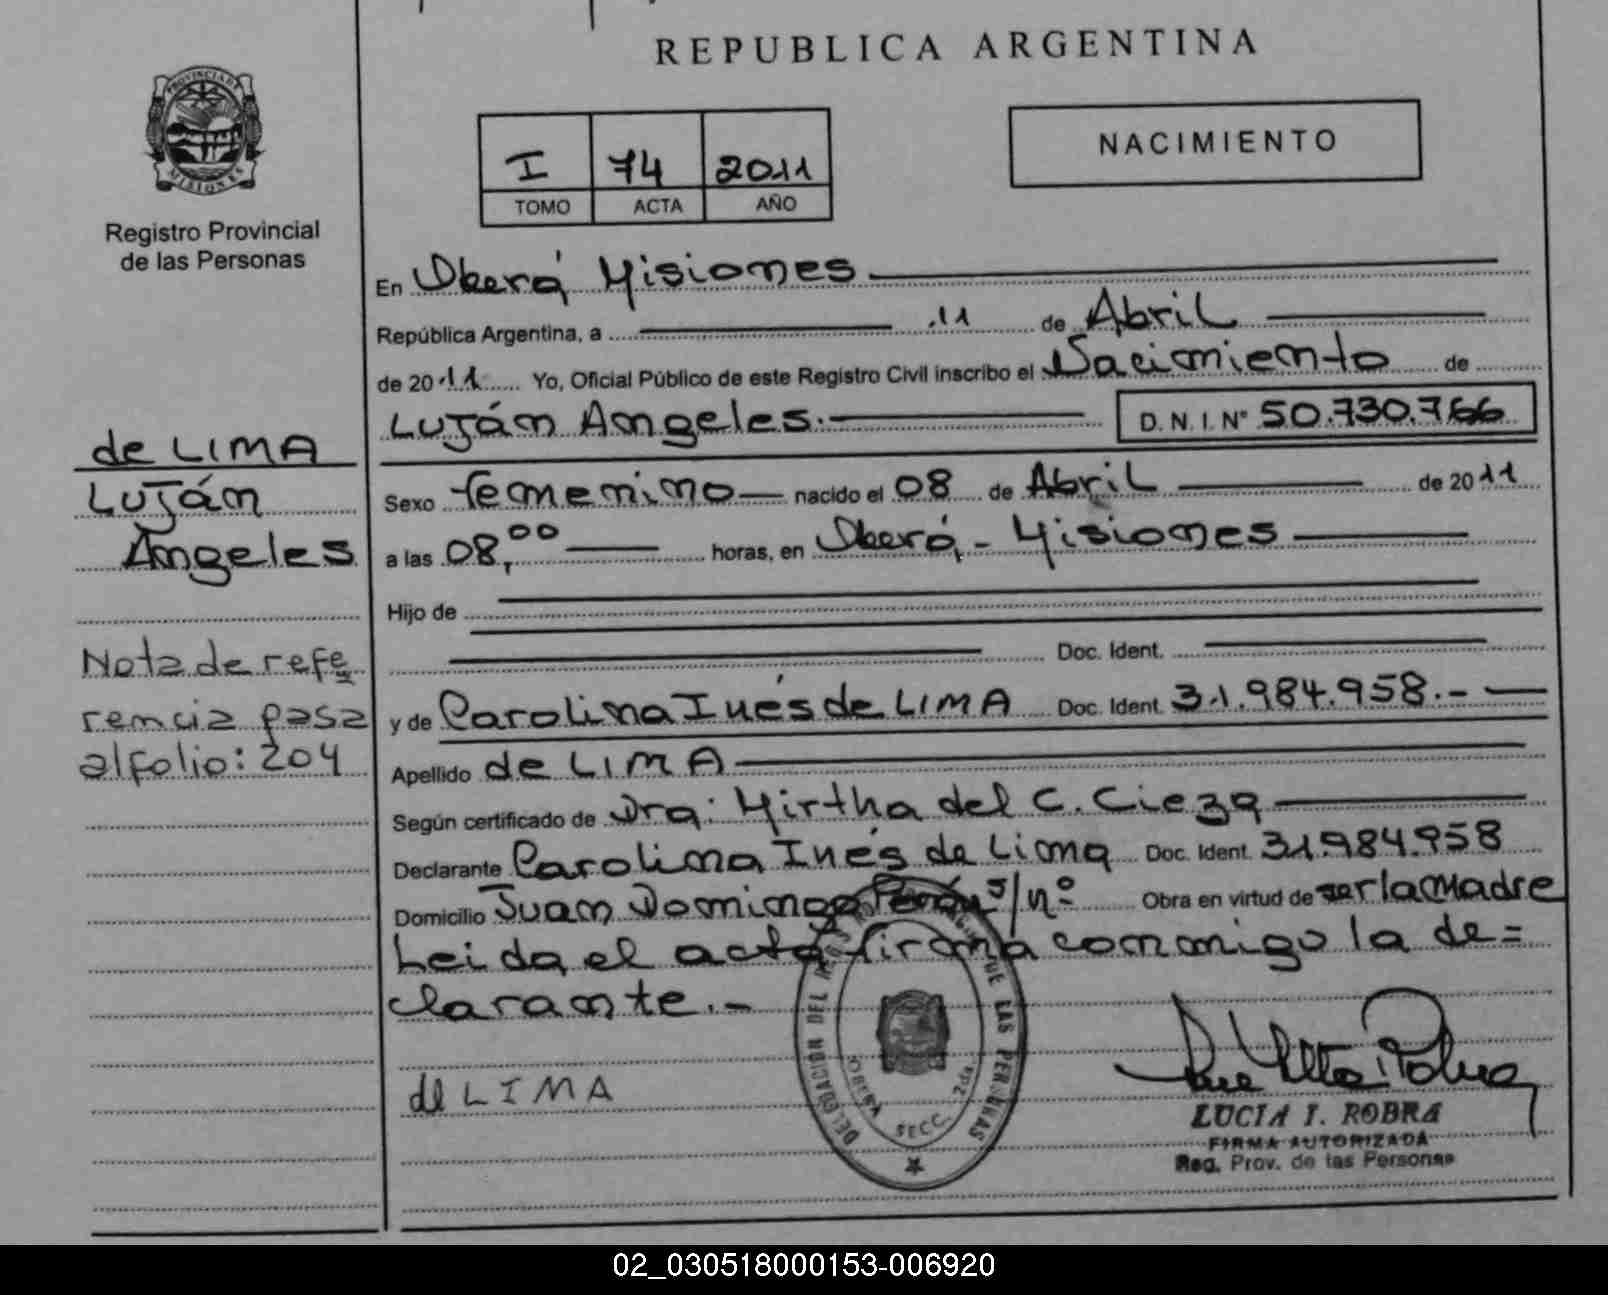 REPUBLICA ARGENTINA
PROVINCIA DE
MISIONES
Registro Provincial
de las Personas
I 74 2011
TOMO ACTA AÑO
NACIMIENTO
En Oberá Misiones
República Argentina, a 11 de Abril
de 2011 Yo, Oficial Público de este Registro Civil inscribo el Nacimiento de
Luján Angeles. D. N. I. Nº 50.730.766
de LIMA
Luján
Angeles
Sexo femenino nacido el 08 de Abril de 2011
a las 08,00 horas, en Oberá - Misiones
Hijo de
Doc. Ident.
Nota de refe
rencia pasa
al folio: 204
y de Carolina Inés de LIMA Doc. Ident. 31.984.958.-
Apellido de LIMA
Según certificado de Dra: Mirtha del C. Cieza
Declarante Carolina Inés de Lima Doc. Ident. 31.984.958
Domicilio Juan Domingo Perón s/nº Obra en virtud de ser la Madre
Leida el acta firma conmigo la de=
clarante.-
de LIMA
DELEGACION DEL REGISTRO DE LAS PERSONAS
OBERA SECC. 2da.
LUCIA I. ROBRA
FIRMA AUTORIZADA
Reg. Prov. de las Personas
02_030518000153-006920